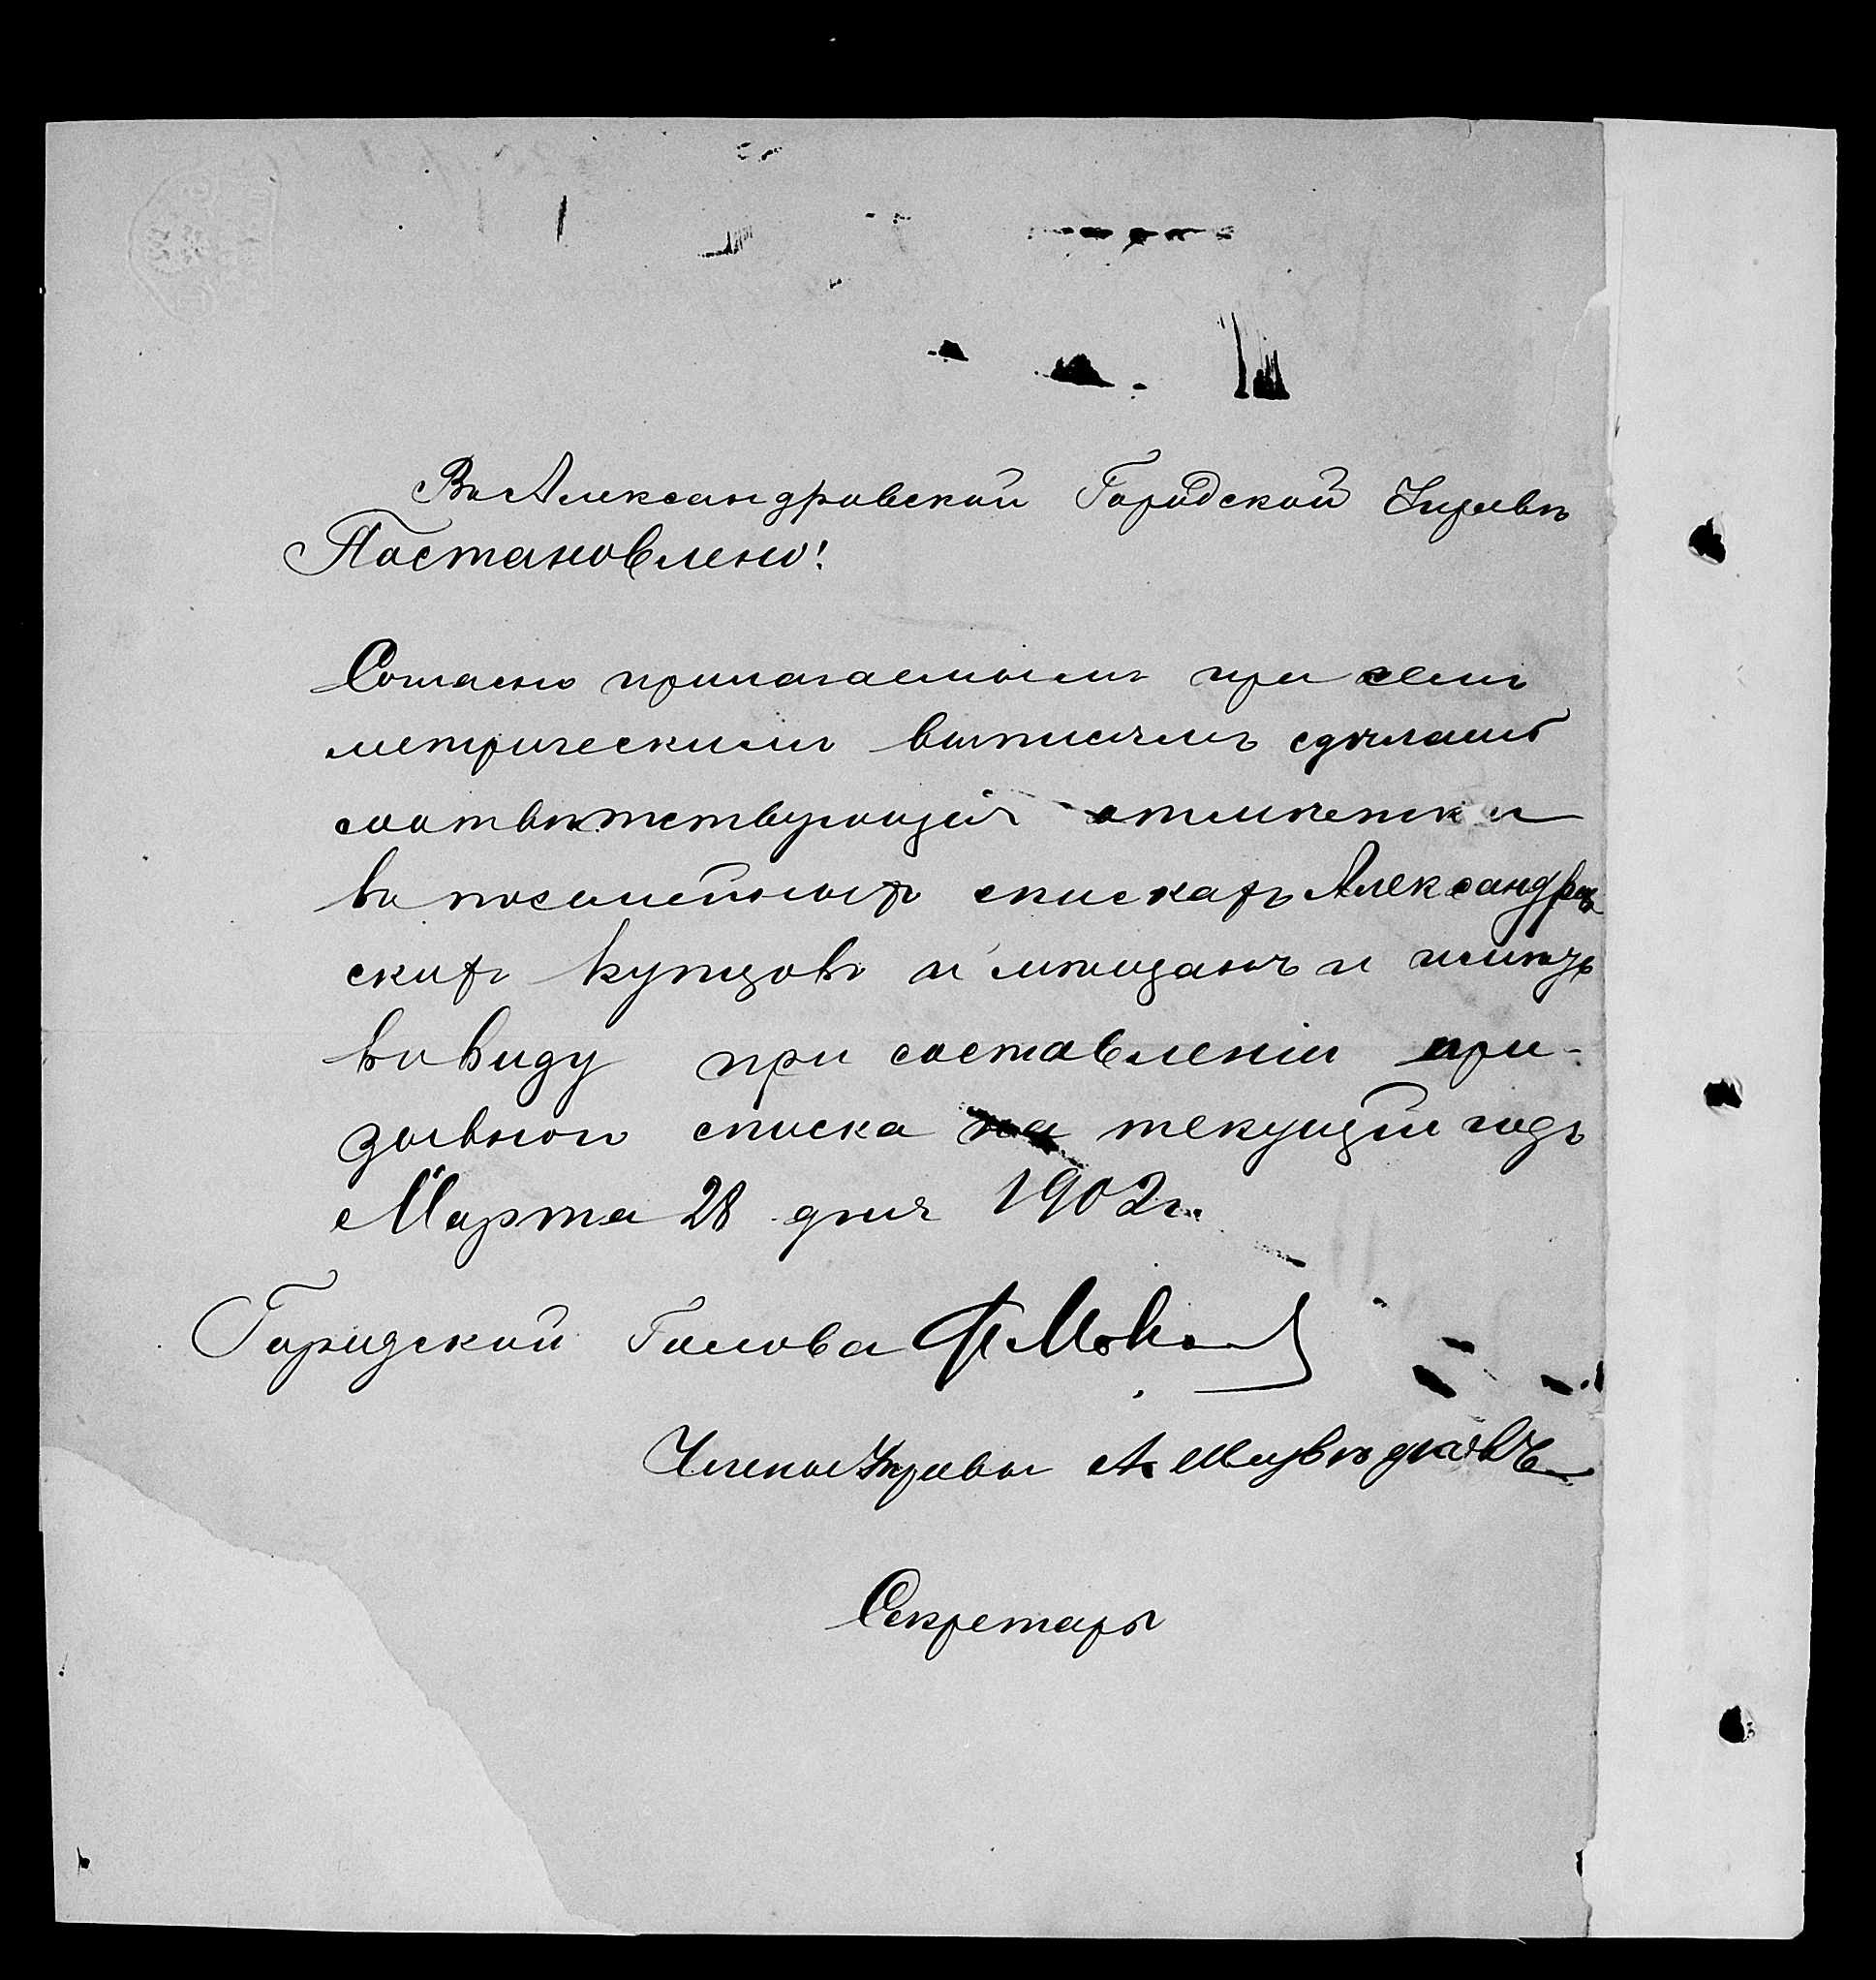 Въ Александровской Городской Управѣ
Постановлено:
Согласно прилагаемымъ при семъ
метрическимъ выписямъ сдѣлать
соотвѣтствующія отмѣтки
въ посемейныхъ спискахъ Александров
скихъ купцовъ и мѣщанъ и имѣть
въ виду при составленіи при-
зывного списка на текущій годъ
Марта 28 дня 1902 г.
Городской Голова
Члены Управы А. Медвѣдковъ
Секретарь